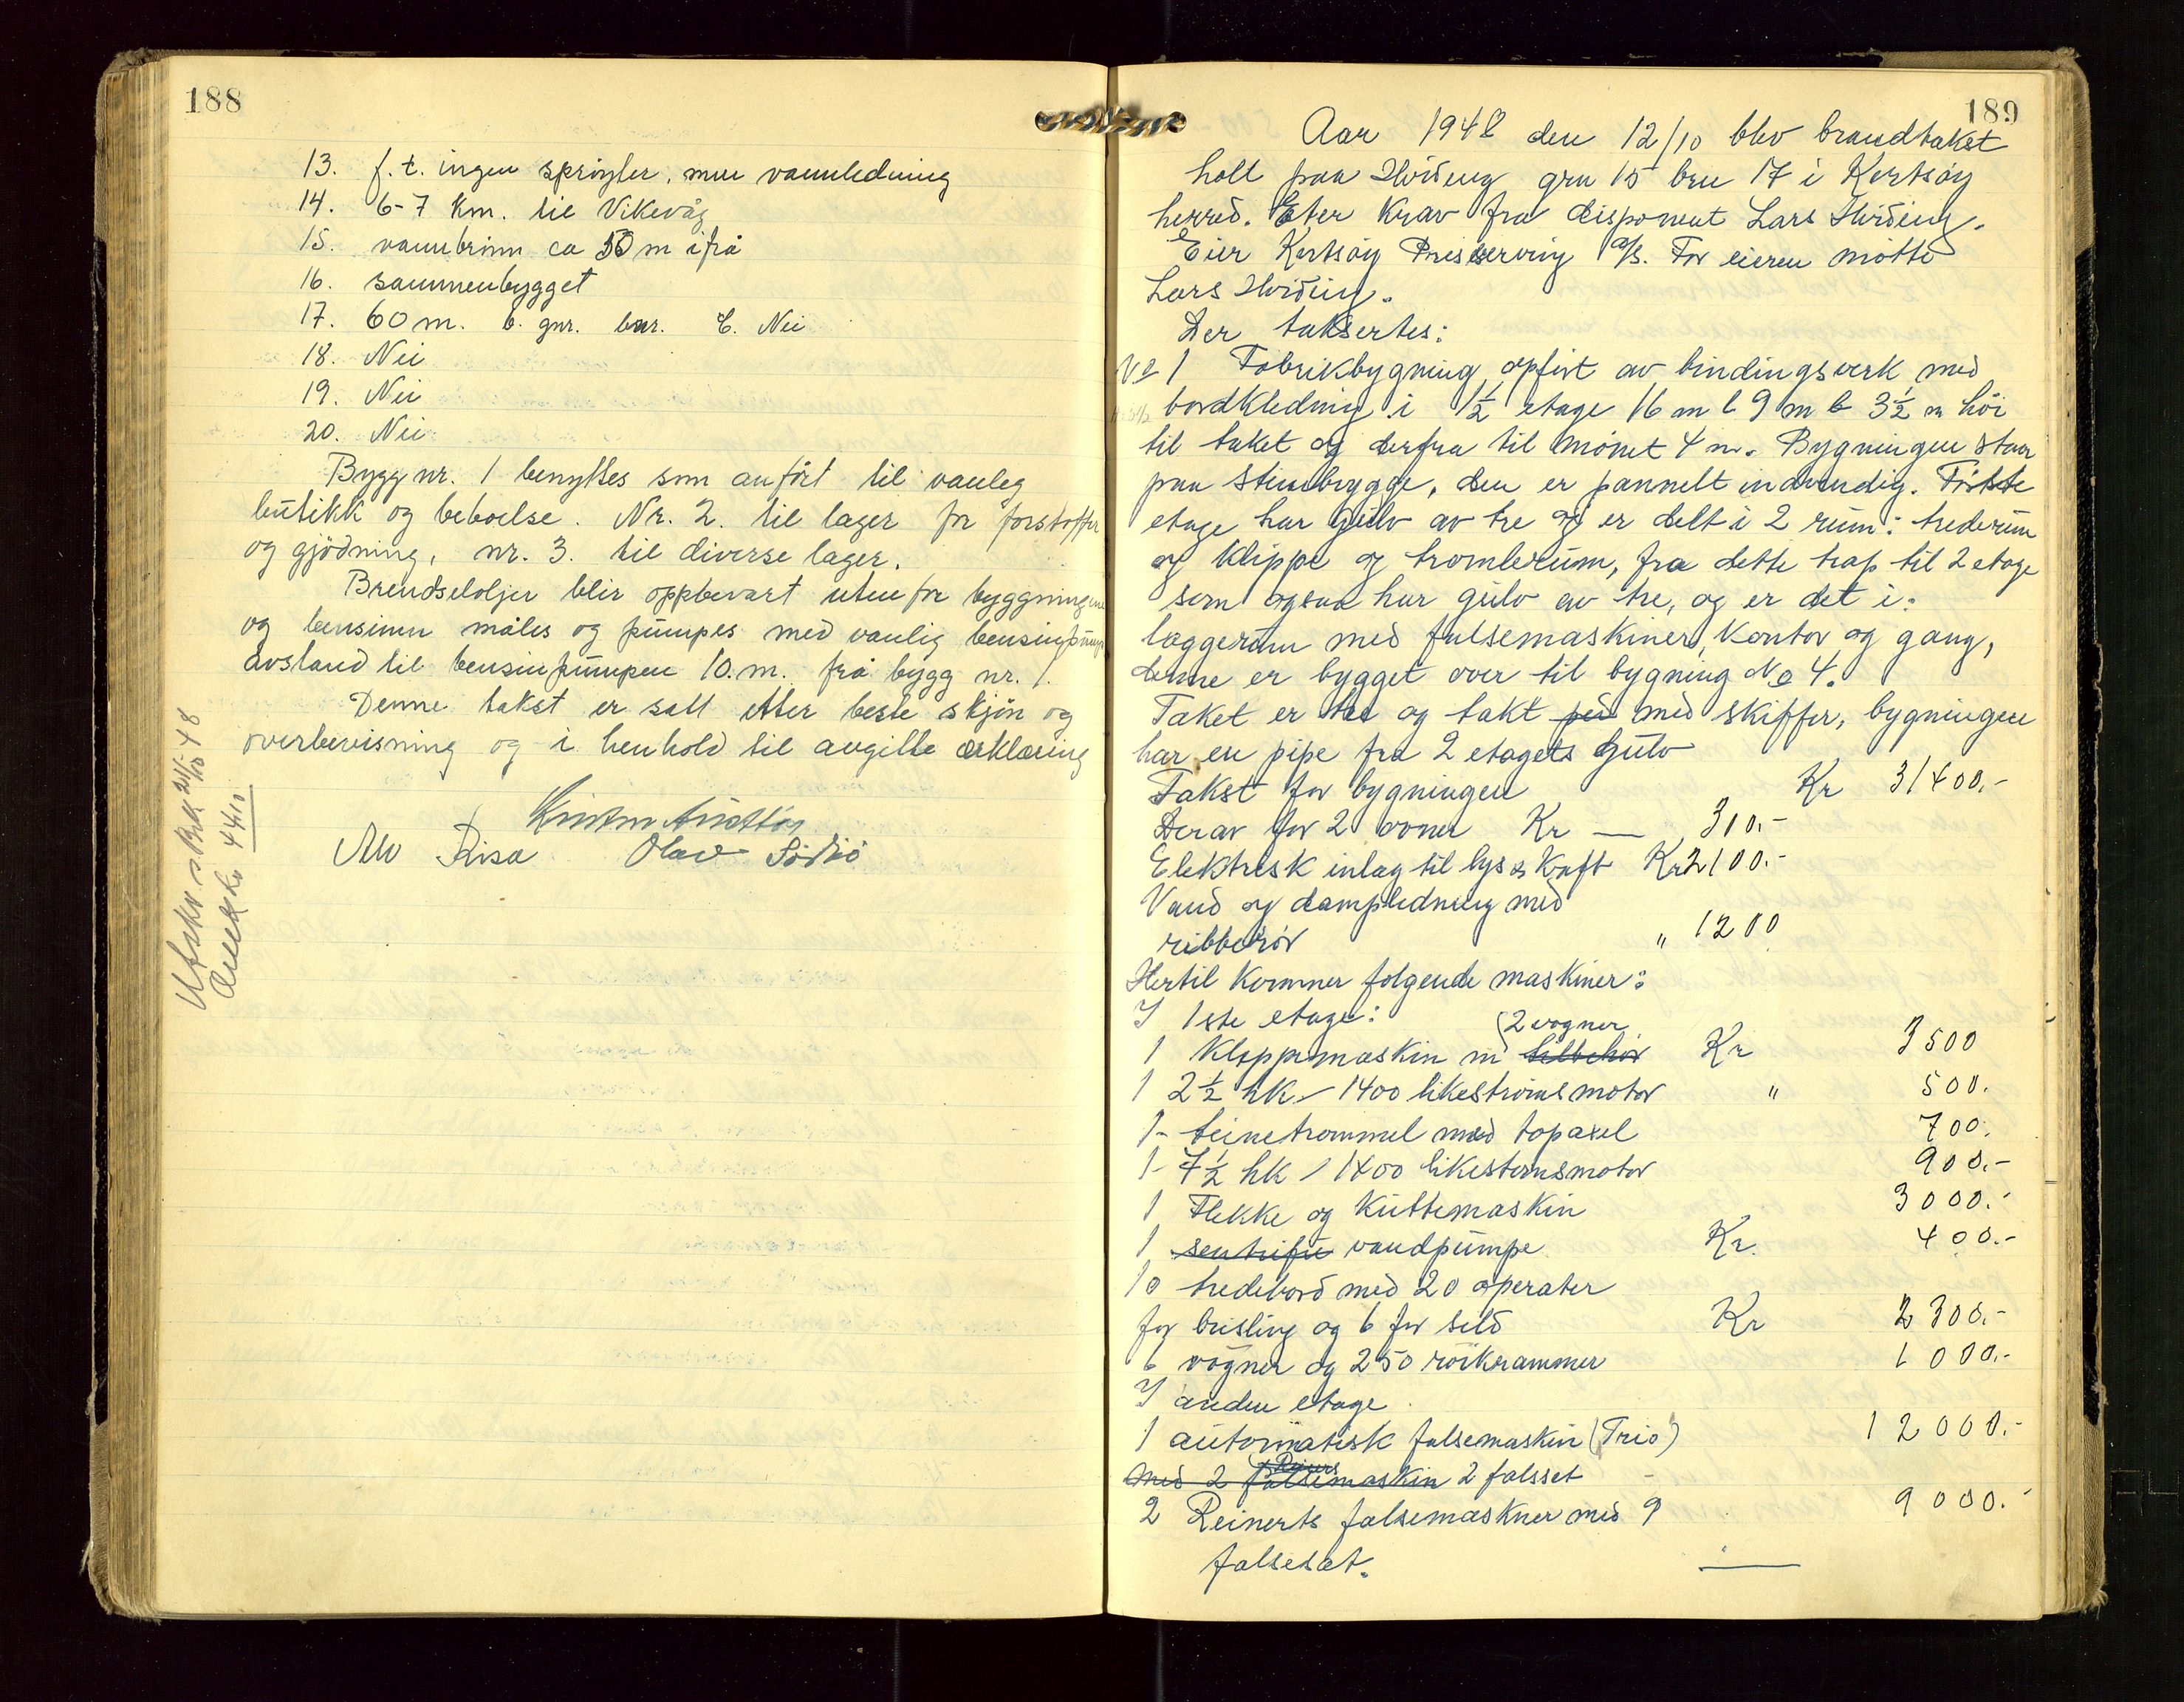 188
13. f.t. ingen sprøyter, men vannledning
14. 6-7 km. til Vikevåg
15. vannbrønn ca 50 m ifrå
16. sammenbygget
17. 60 m. b. gnr. bnr. C. Nei
18. Nei
19. Nei
20. Nei
Bygg nr. 1 benyttes som anført til vanleg
butikk og beboelse. Nr. 2. til lager for forstoffer
og gjödning, nr. 3. til diverse lager.
Brendseloljer blir oppbevart utenfor byggningene
og bensinen måles og pumpes med vanlig bensinpumpe
avstand til bensinpumpen 10.m. frå bygg nr. 1.
Denne takst er satt etter beste skjön og
overbevisning og i henhold til avgitte ærklæring
Alv Risa Olav
Utskr. s. 21/10-48
189
Aar 1948 den 12/10 blev brandtakst
holt paa Hviding grn 15 brn 17 i
herred. Eter Krav fra disponent Lars Hviding.
Eier Preserving A/S. For eieren møtte
Lars Hviding.
Der taksertes:
No 1 Fabrikbygning opført av bindingsverk med
bordkledning i 1½ etage 16 m l 9 m b 3½ m höi
til taket og derfra til mønet 4 m. Bygningen staar
paa stenbrygge, den er pannelt indvendig. Første
etage har gulv av tre og er delt i 2 rum: trederum
og klippe og tromlerum, fra dette trap til 2 etage
som ogsaa har gulv av tre, og er det i:
laggerum med falsemaskiner, Kontor og gang,
denne er bygget over til bygning No 4.
Taket er tre og takt på med skiffer, bygningen
har en pipe fra 2 etagets Gulv
Takst for bygningen Kr 31400.-
Derav for 2 ovner Kr — 300.-
Elektrisk inlag til lys & Kraft Kr 2100.-
Vand og dampledning med
ribberör " 1200
Hertil Kommer folgende maskiner:
I 1ste etage:
(2 vogner
1 Klippemaskin m tilbehör Kr 3500
1 2½ hk - 1400 likeströmsmotor " 500.
1- teinetrommel med topaxel 700.
1- 7½ hk / 1400 likestrømsmotor 900.-
1 Flekke og Kuttemaskin 3000.-
1 sentrifu vandpumpe Kr. 400.-
10 tredebord med 20 operater
for brisling og 6 for sild Kr 2300.-
6 vogner og 250 röikrammer 1000.-
I anden etage
1 automatisk falsemaskin (Trio) 12000.-
med 2 falsemaskin 2 falsset
2 Reinerts falsemaskner med 9 9000.-
falsesæt.